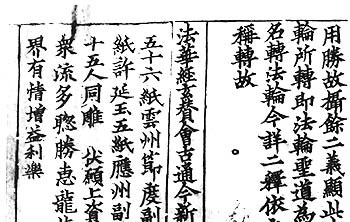 用勝故攝餘二義顯此
輪所轉即法輪聖道為
名轉法輪今詳二釋依
稱轉故
法華經玄賛會古通今新
五十六紙雲州節度副
紙許延玉五紙應州副
十五人同雕 伏願上資
衆流多聦勝惠龍
界有情增益利樂